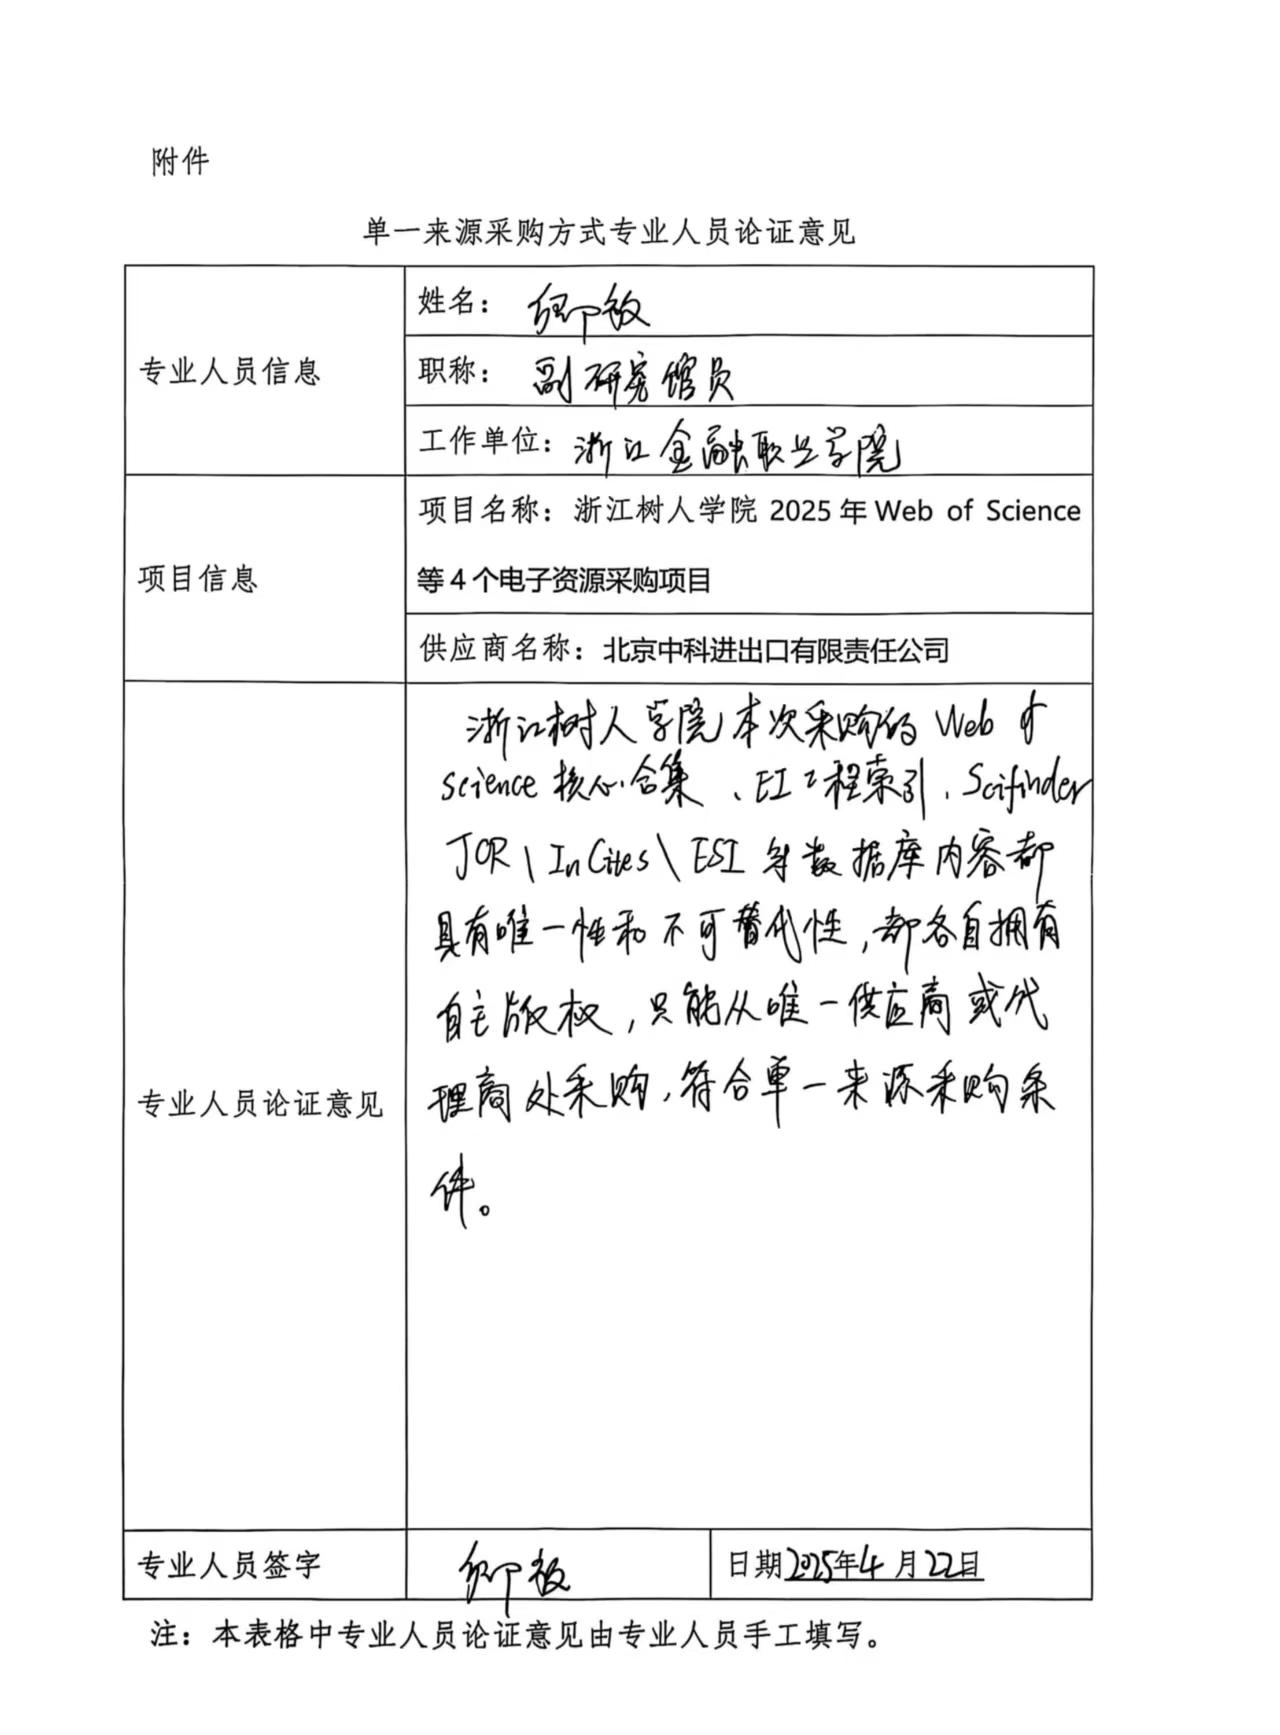 附件
单一来源采购方式专业人员论证意见
专业人员信息
姓名：
职称：副研究馆员
工作单位：浙江金融职业学院
项目信息
项目名称：浙江树人学院 2025年Web of Science
等4个电子资源采购项目
供应商名称：北京中科进出口有限责任公司
专业人员论证意见
浙江树人学院本次采购的 Web of
science 核心合集、EI工程索引、Scifinder
JCR\InCites\ESI 等数据库内容都
具有唯一性和不可替代性，都各自拥有
自主版权，只能从唯一供应商或代
理商处采购，符合单一来源采购条
件。
专业人员签字
日期2025年4月22日
注：本表格中专业人员论证意见由专业人员手工填写。